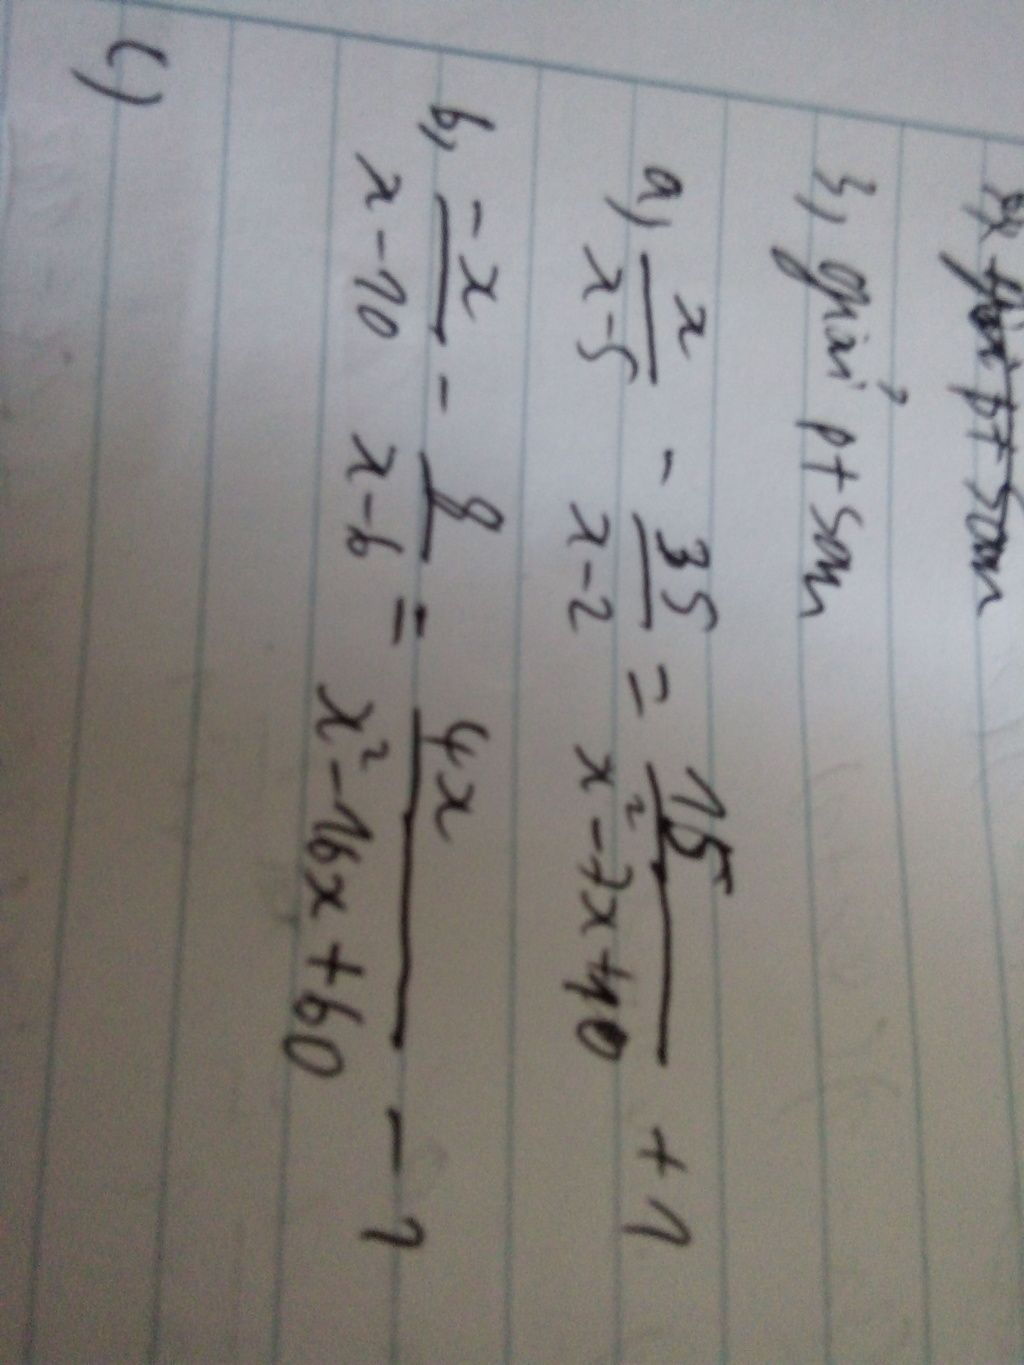 3, giải pt sau
a, x/(x-5) - 35/(x-2) = 15/(x²-7x+10) + 1
b, -x/(x-10) - 8/(x-6) = 4x/(x²-16x+60) - 1